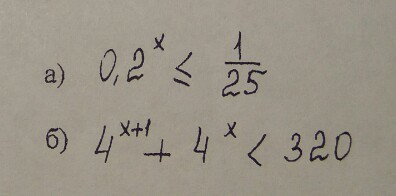 а) 0,2^x ≤ 1/25
б) 4^{x+1} + 4^x < 320